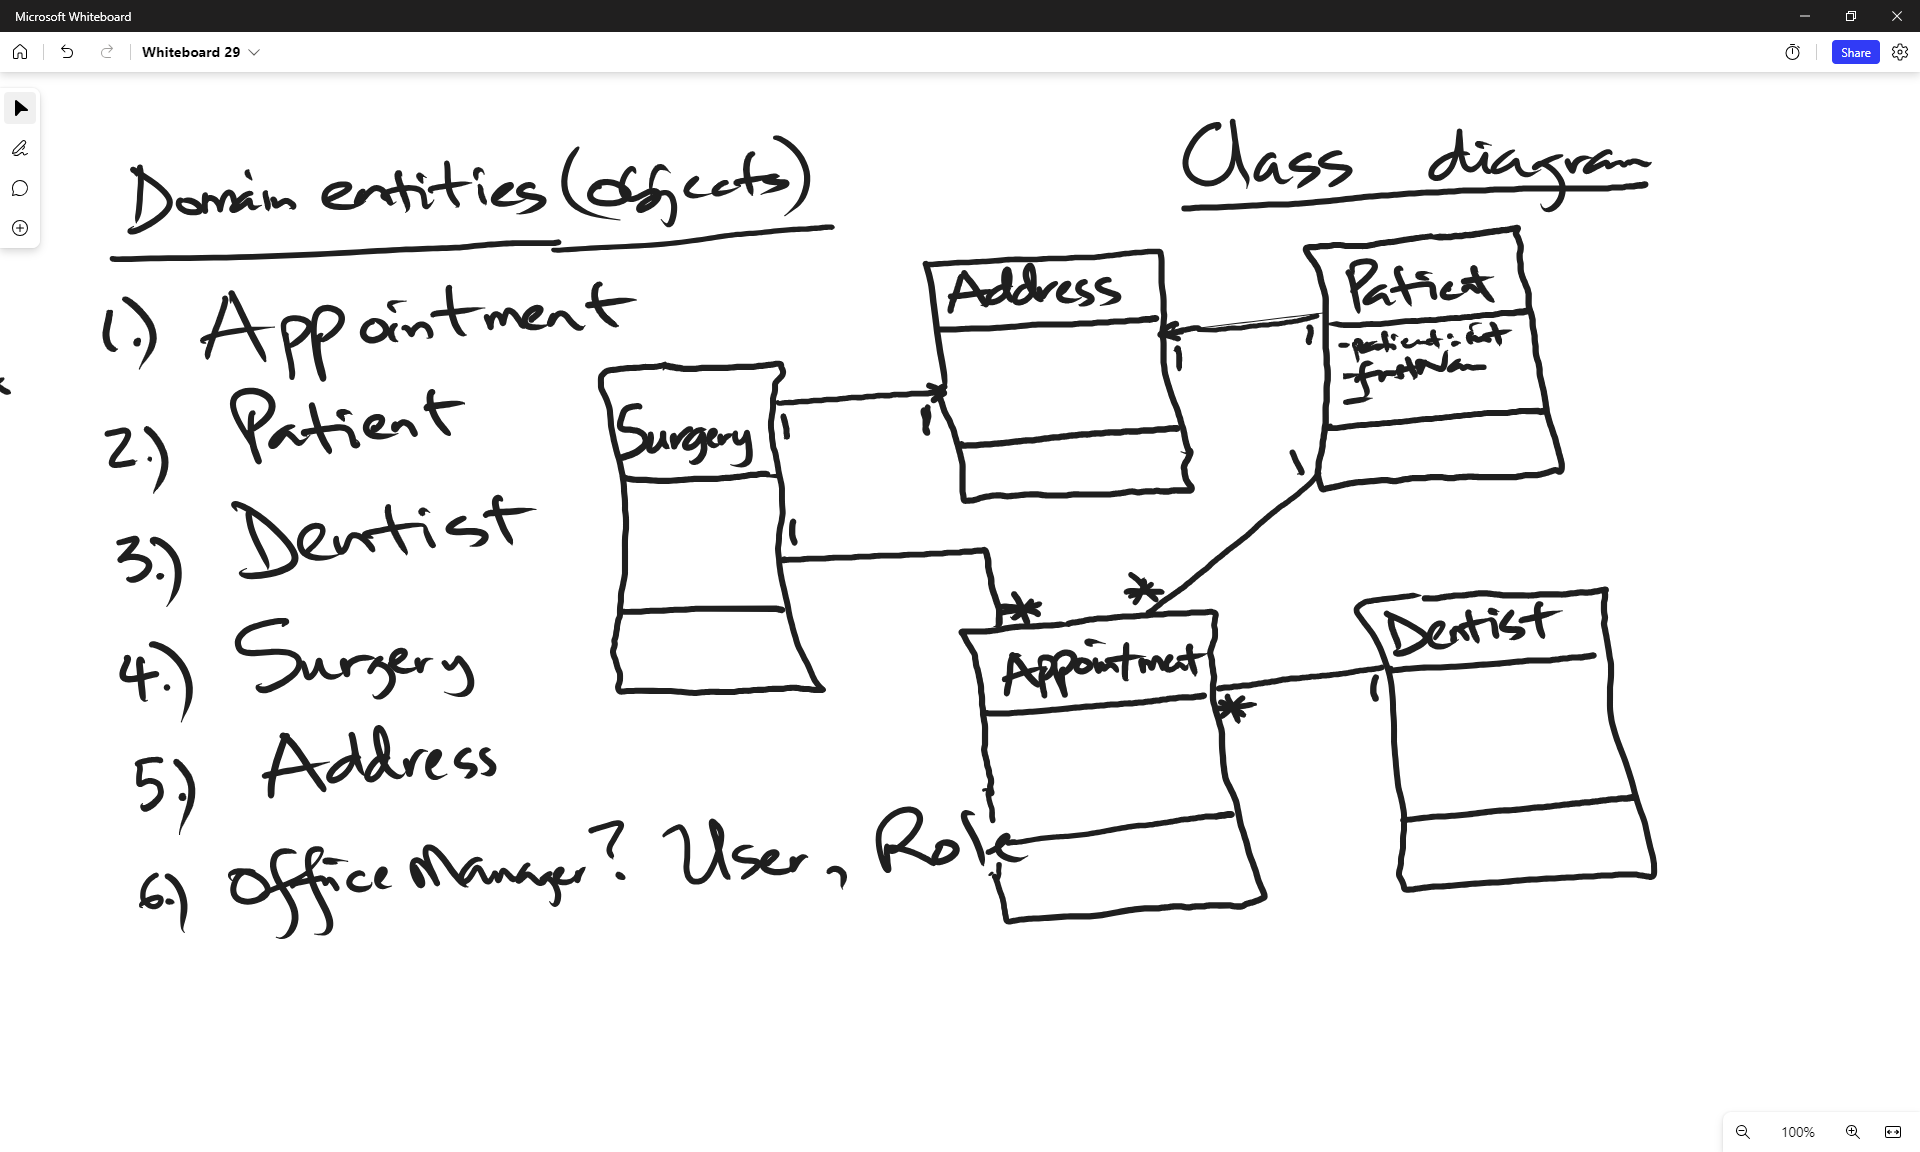 Microsoft Whiteboard
Whiteboard 29
Share
Domain entities (objects)
1.) Appointment
2.) Patient
3.) Dentist
4.) Surgery
5.) Address
6.) Office Manager? User, Role
Class diagram
Address
Patient
- patient : int
- firstNam
-
Surgery
Appointment
Dentist
1
1
1
1
1
1
*
*
*
1
100%